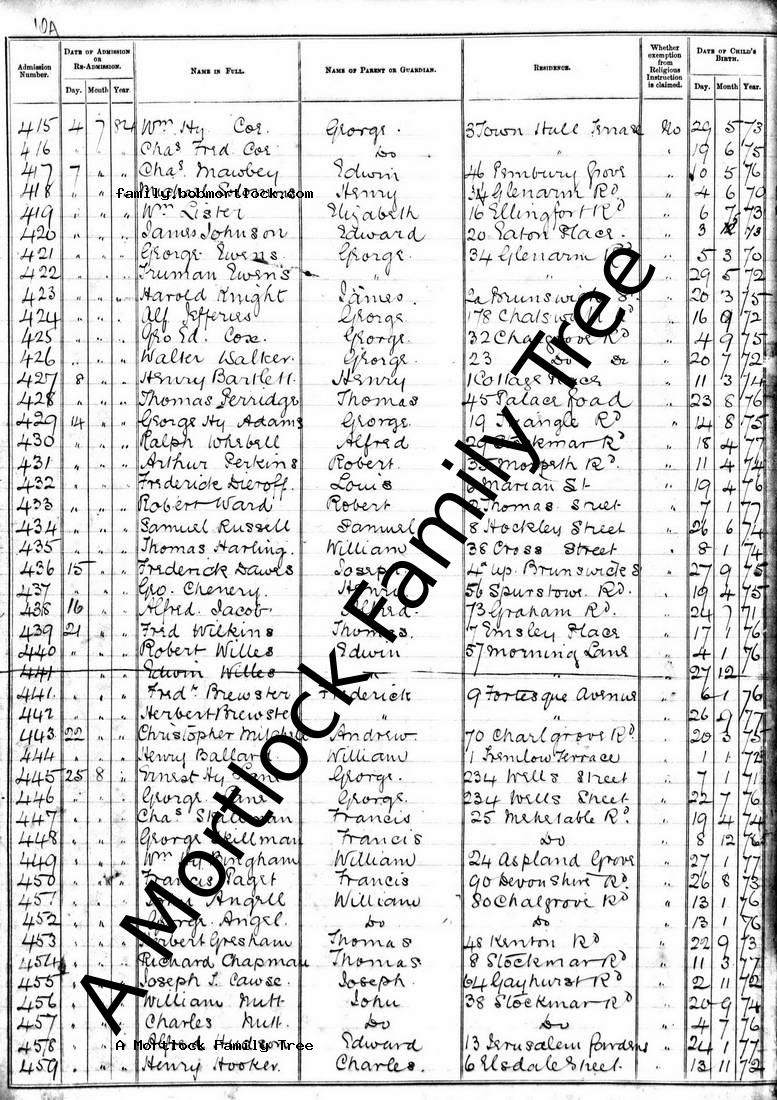 10A
Admission Number. DATE OF ADMISSION OR RE-ADMISSION. Day. Month Year. NAME IN FULL. NAME OF PARENT OR GUARDIAN. RESIDENCE. Whether exemption from Religious Instruction is claimed. DATE OF CHILD'S BIRTH. Day. Month Year.
415 4 7 84 Wm Hy Coe George. 3 Town Hall Terrace No 29 5 73
416 " " " Chas Fred Coe Do " " 19 6 75
417 7 " " Chas Mawbey Edwin 46 Pembury Grove " 10 5 76
418 " " " Henry 34 Glenarm Rd " 4 6 70
family.bobmortlock.com
419 " " " Wm Lister Elizabeth 16 Ellingfort Rd " 6 73
420 " " " James Johnson Edward 20 Eaton Place. " 3 73
421 " " " George Ewens George. 34 Glenarm Rd " 5 3 70
422 " " " Truman Ewens " " " 29 5 72
423 " " " Harold Knight James. 2a Brunswick St " 20 3 75
424 " " " Alf Jefferies George 178 Chatsworth Rd " 16 9 72
425 " " " Geo Ed. Cox. George. 32 Chalgrove Rd " 4 9 75
426 " " " Walter Walker. George. 23 Do Do " 20 7 72
427 8 " " Henry Bartlett. Henry 1 Cottage Place " 11 3 74
428 " " " Thomas Perridge Thomas 45 Palace Road " 23 8 76
429 14 " " George Hy Adams George. 19 Triangle Rd " 14 8 75
430 " " " Ralph Whebell Alfred Stockmar Rd " 18 4 77
431 " " " Arthur Perkins Robert. 33 Morpeth Rd. " 11 4 74
432 " " " Frederick Dieroff. Louis Marian St " 19 4 76
433 " " " Robert Ward Robert Thomas Street " 7 1 77
434 " " " Samuel Russell Samuel 8 Hockley Street " 26 6 74
435 " " " Thomas Harling. William 38 Cross Street " 8 1 74
436 15 " " Frederick Dawes Joseph 4a Up. Brunswick S " 27 9 75
437 " " " Geo. Chenery. Henry 56 Spurstowe Rd. " 19 4 75
438 16 " " Alfred. Jacob Alfred. 73 Graham Rd. " 24 7 71
439 21 " " Fred Wilkins Thomas. 7 Emsley Place " 17 1 76
440 " " " Robert Willes Edwin 57 Morning Lane " 4 1 76
441 Edwin Willes " 27 12
441. " " " Fredk Brewster Frederick 9 Fortesque Avenue " 6 1 76
442 " " " Herbert Brewster " " " 26 9 77
443 22 " " Christopher Mitchell Andrew 70 Charlgrove Rd. " 20 3 75
444 " " " Henry Ballard William 1 Tremlow Terrace " 1 1 72
445 25 8 " Ernest Hy Lane George. 234 Wells Street " 7 1 71
446 " " " George Lane George. 234 Wells Street. " 22 7 76
447 " " " Chas Skillman Francis 25 Mehetable Rd. " 19 4 74
448 " " " George Skillman Francis Do " 8 12 76
449 " " " Wm Hy Bingham William 24 Aspland Grove " 27 1 77
450 " " " Francis Paget Francis 90 Devonshire Rd. " 26 8 73
451 " " " John Angell William 80 Chalgrove Rd " 13 1 76
452 " " " George Angel. Do Do " 13 1 76
453 " " " Herbert Gresham Thomas 48 Kenton Rd " 22 9 73
454 " " " Richard Chapman Thomas 8 Stockmar Rd " 11 3 77
455 " " " Joseph T. Cawse. Joseph 64 Gayhurst Rd " 2 11 72
456 " " " William Nutt John 38 Stockmar Rd " 20 9 74
457 " " " Charles Nutt. Do Do " 4 7 76
458 " " " Alfred Edward 13 Jerusalem Gardens " 24 1 77
A Mortlock Family Tree
459 " " " Henry Hooker. Charles. 6 Elsdale Street. " 13 11 72
A Mortlock Family Tree